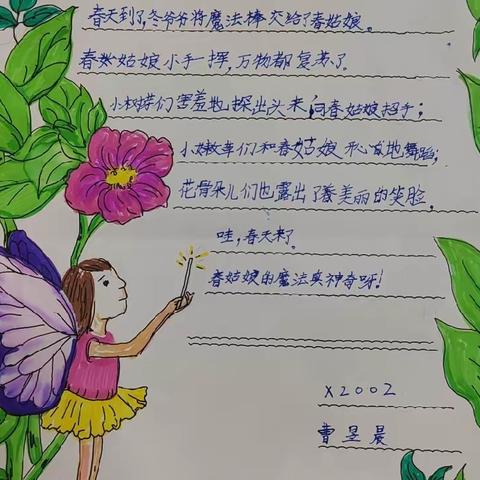 春天到了,冬爷爷将魔法棒交给了春姑娘。
春姑娘小手一挥,万物都复苏了。
小树芽们害羞地探出头来,向春姑娘招手;
小嫩草们和春姑娘开心地舞蹈;
花骨朵儿们也露出了美丽的笑脸。
哇,春天来了。
春姑娘的魔法真神奇呀!
X2002
曹昱晨